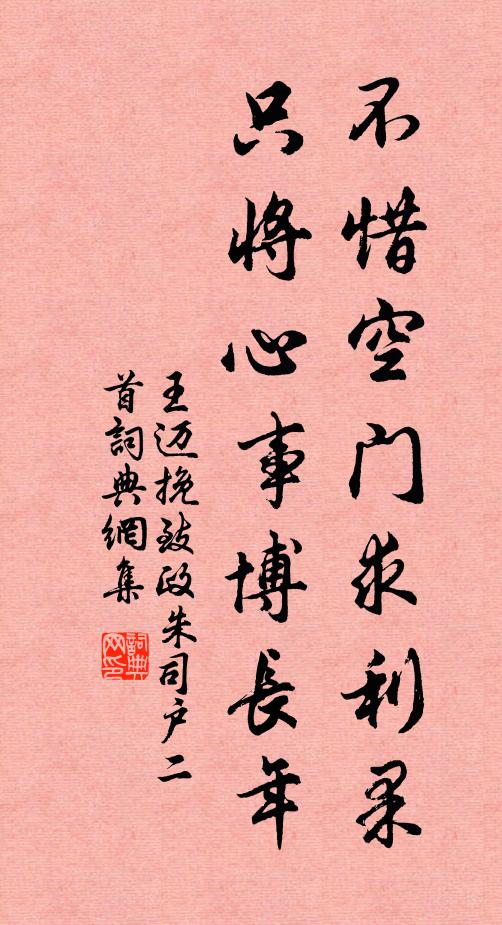 不惜空门求利果
只将心事博長年
王迈挽致政朱司户二
首詞典網集
詞典网印